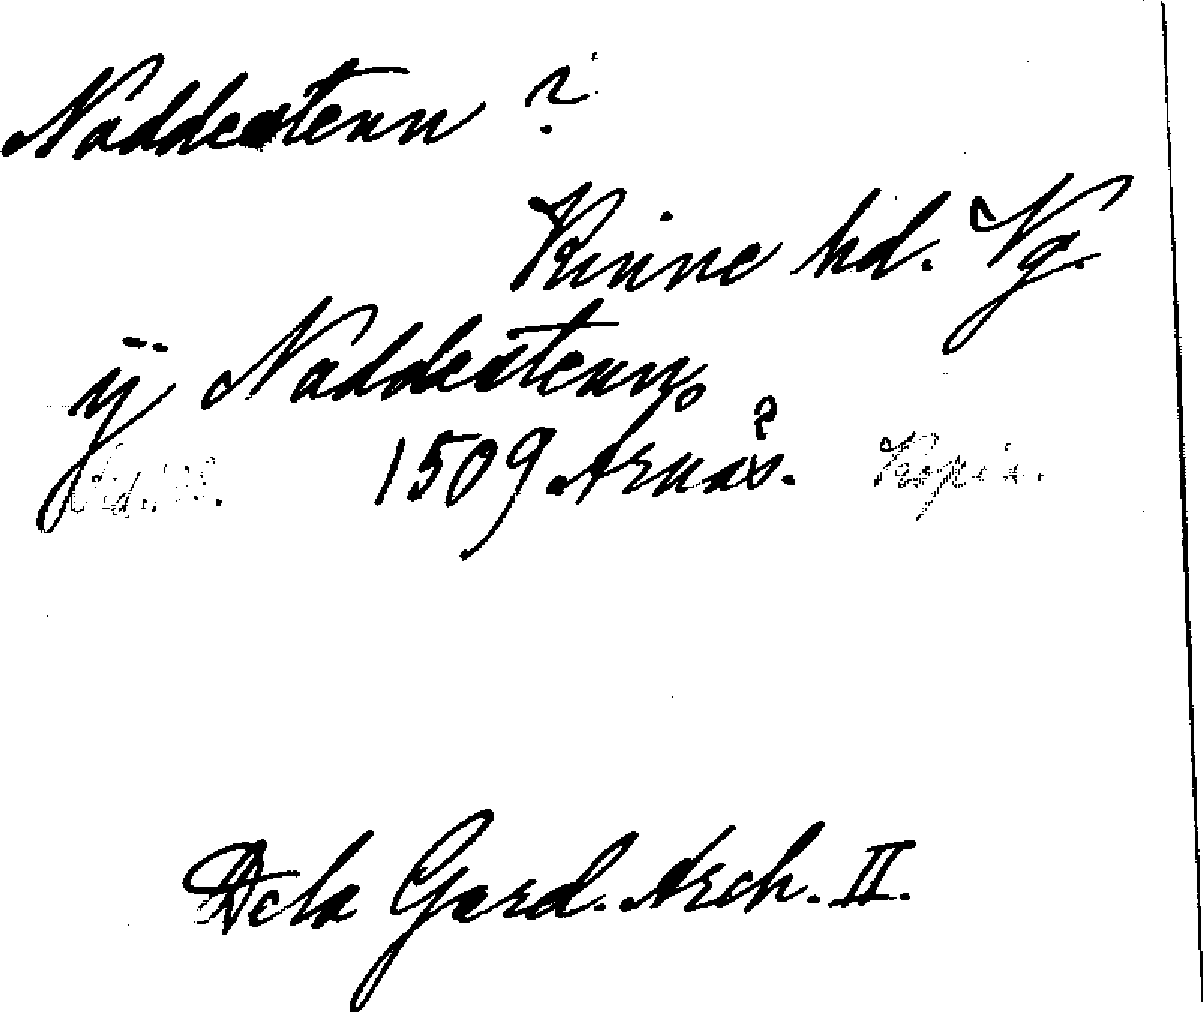 Naddestenn ?
Kinne hd. Vg.
ÿ Naddestenn
1509 Arnäs. ? Kopia.
De la Gard. Arch. II.